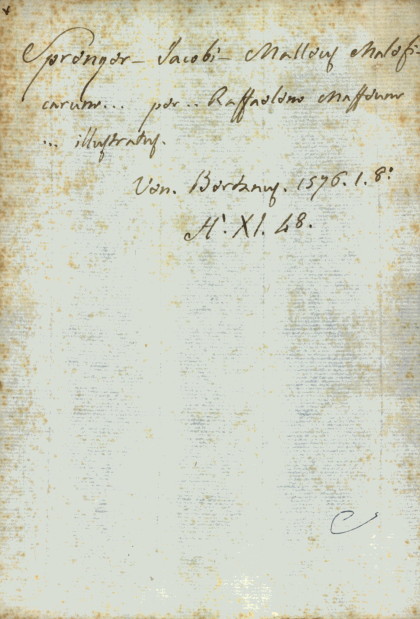 Sprenger - Jacobi - Malleus Malefi-
carum... per .. Raffaelem Maffeum
... illustratus.
Ven. Bertanus. 1576. 1. 8°
H. XI. 48.